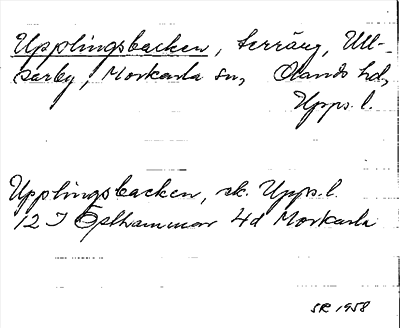 Upplingsbacken, terräng, Ull-
sarby, Morkarla sn, Olands hd,
Upps. l.
Upplingsbacken, ek. Upps. l.
12 I Östhammar 4d Morkarla
SR 1958